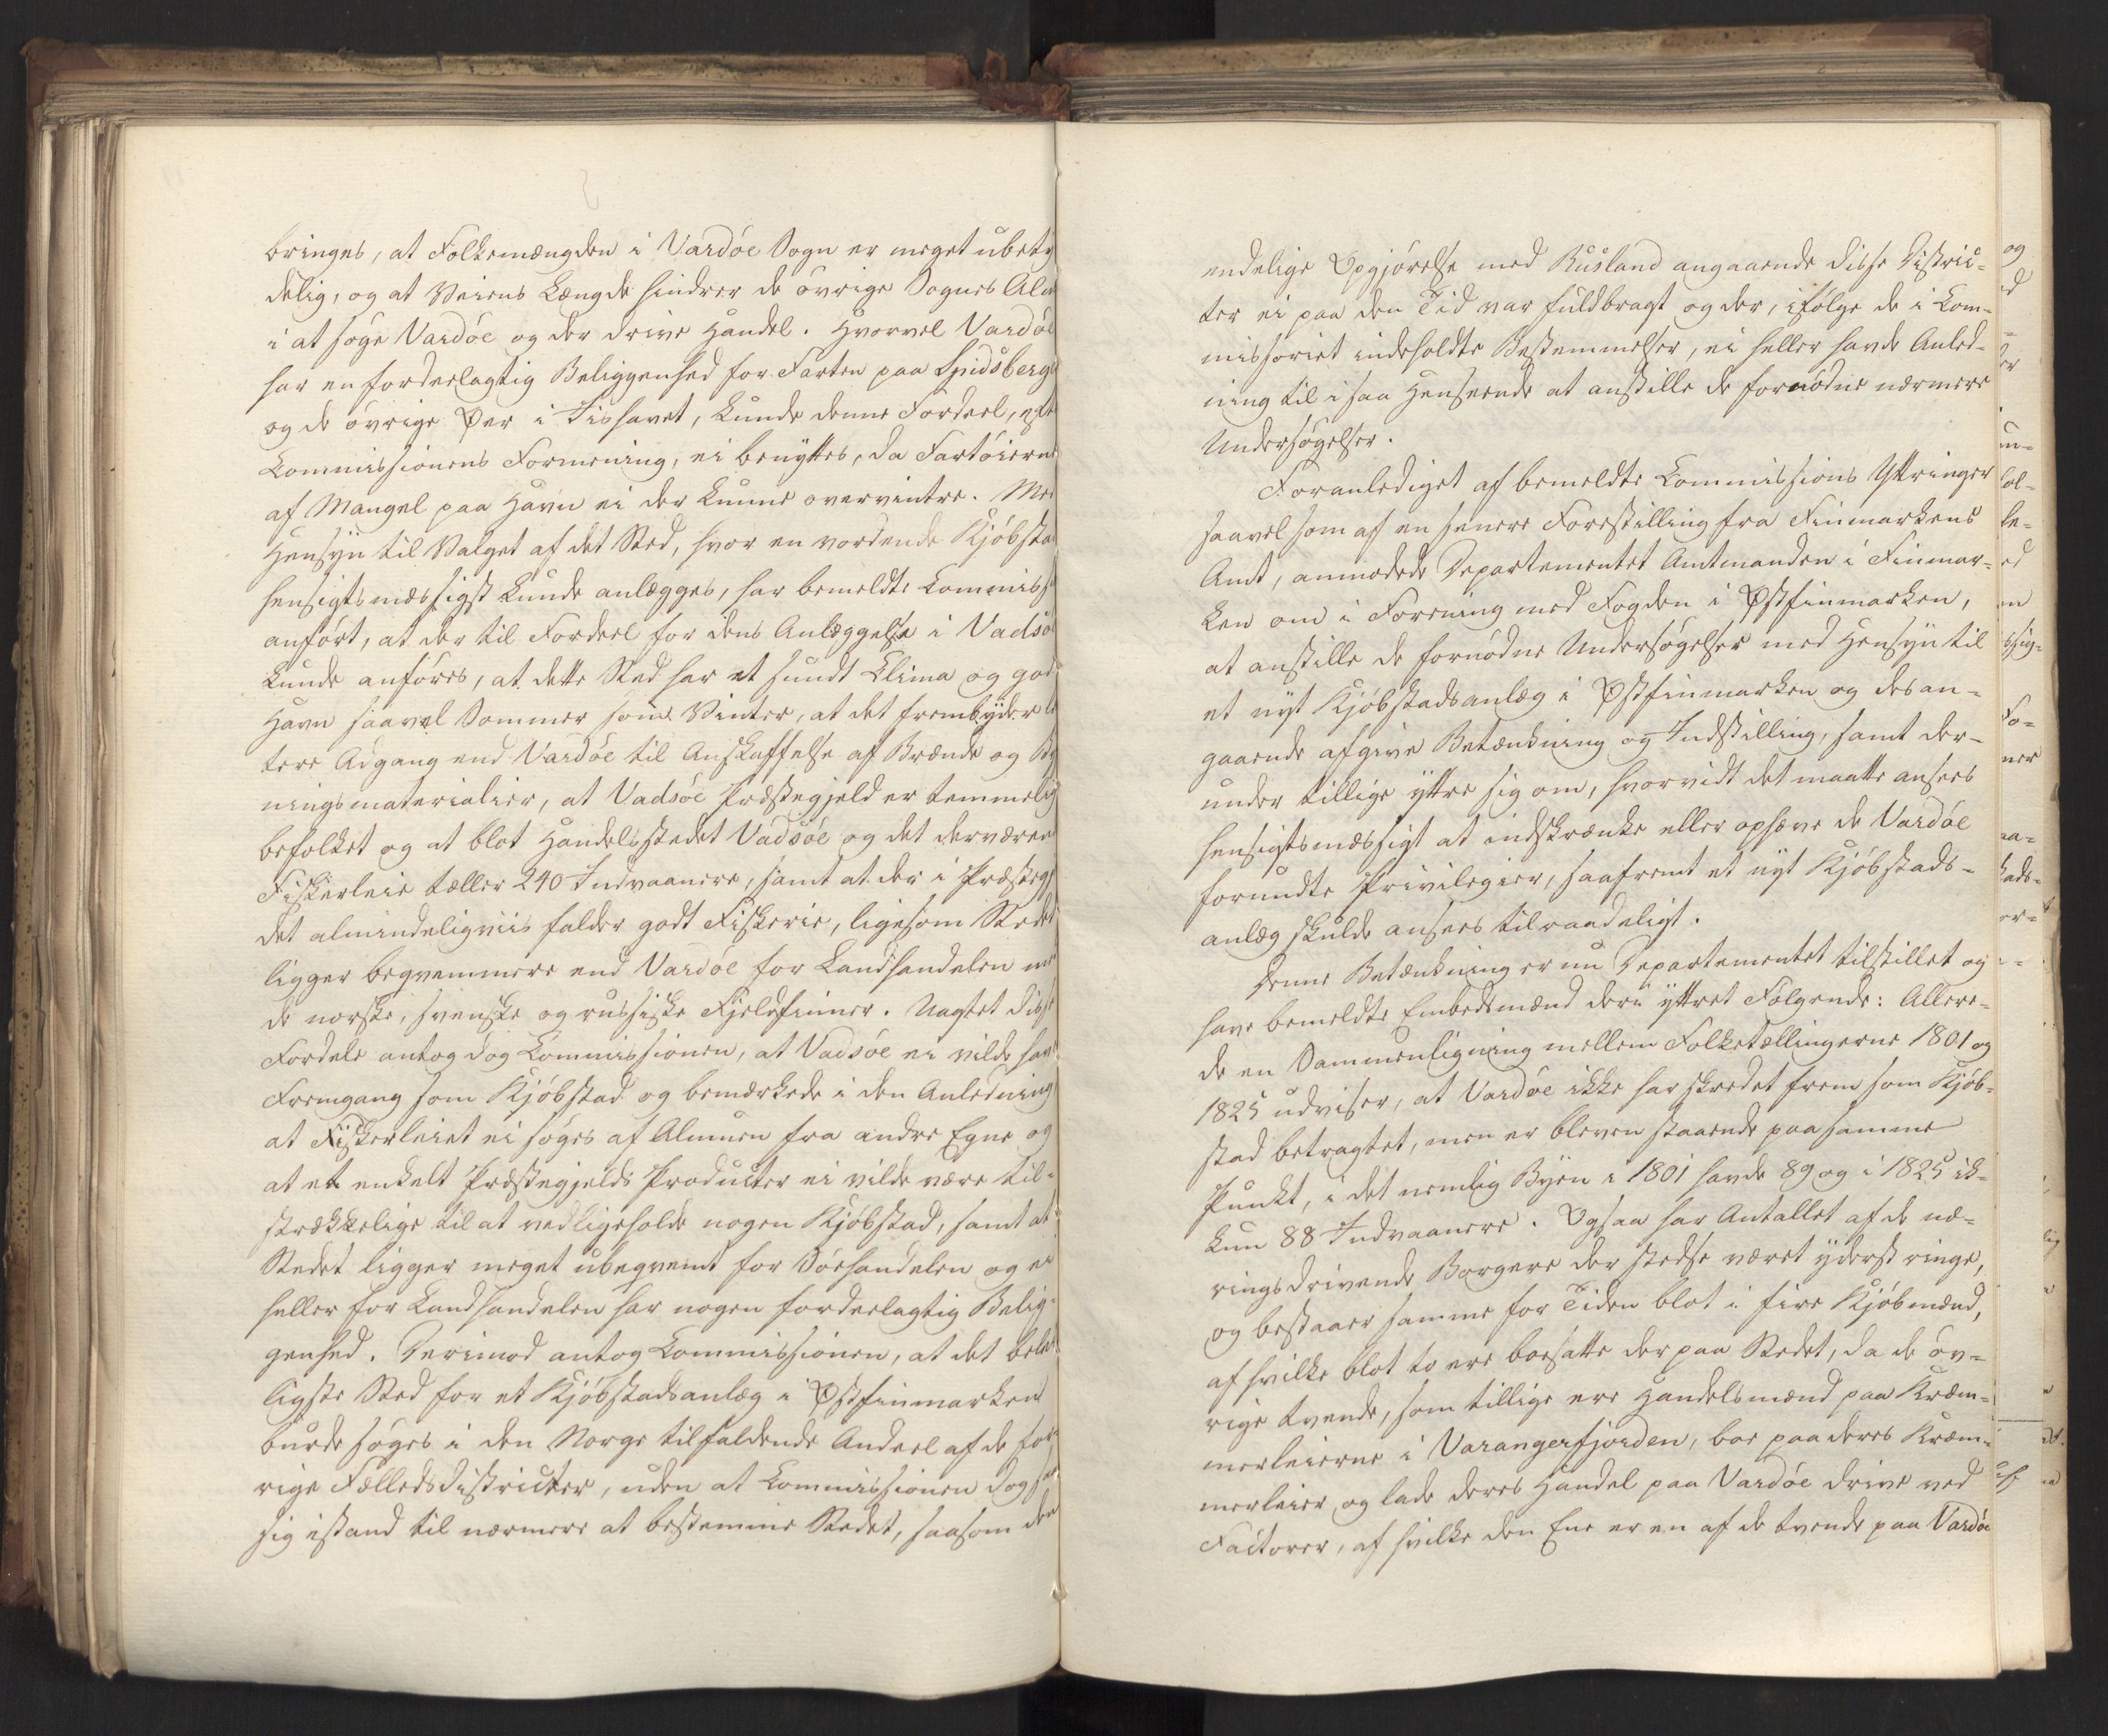 bringes, at Folkemængden i Vardöe Sogn er meget ubety
delig, og at Veiens Længde hindrer de övrige Sognes Alm
i at söge Vardöe og der drive Handel. Hvorvel Vardöe
har en fordeelagtig Beliggenhed for Farten paa Spidsberge
og de övrige Øer i Iishavet, kunde denne Fordeel, efte
Commissionens Formening, ei benyttes, da Fartöierne
af Mangel paa Havn ei der kunne overvintre. Med
Hensyn til Valget af det Sted, hvor en vordende Kjöbsta
hensigtsmæssigst kunde anlægges, har bemeldte Commiss
anfört, at der til Fordeel for dens Anlæggelse i Vadsö
kunde anföres, at dette Sted har et sundt Clima og god
Havn saavel Sommer som Vinter, at det frembyder le
tere Adgang end Vardöe til Anskaffelse af Brænde og By
ningsmaterialier, at Vadsöe Præstegjeld er temmelig
befolket og at blot Handelsstedet Vadsöe og det derværen
Fiskerleie tæller 240 Indvaanere, samt at der i Præsteg
det almindeligviis falder godt Fiskerie, ligesom Stedet
ligger beqvemmere end Vardöe for Landhandelen med
de norske, svenske og russiske Fjeldfinner. Uagtet disse
Fordele antog dog Commissionen, at Vadsöe ei vilde have
Fremgang som Kjöbstad og bemærkede i den Anledning
at Fiskerleiet ei söges af Almuen fra andre Egne og
at et enkelt Præstegjelds Producter ei vilde være til-
strækkelige til at vedligeholde nogen Kjöbstad, samt at
Stedet ligger meget ubeqvemt for Söehandelen og ei
heller for Landhandelen har nogen fordeelagtig Belig-
genhed. Derimod antog Commissionen, at det belei
ligste Sted for et Kjöbstadsanlæg i Østfinmarken
burde söges i den Norge tilfaldende Andeel af de for-
rige Fælledsdistricter, uden at Commissionen dog saae
sig istand til nærmere at bestemme Stedet, saasom den
endelige Opgjörelse med Rusland angaaende disse Distric-
ter ei paa den Tid var fuldbragt og der, ifölge de i Com-
missoriet indeholdte Bestemmelser, ei heller havde Anled-
ning til i saa Henseende at anstille de fornödne nærmere
Undersögelser.
Foranlediget af bemeldte Commissions Yttringer
saavelsom af en senere Forestilling fra Finmarkens
Amt, anmodede Departementet Amtmanden i Finmar-
ken om i Forening med Fogden i Østfinmarken,
at anstille de fornödne Undersögelser med Hensyn til
et nyt Kjöbstadsanlæg i Østfinmarken og desan-
gaaende afgive Betænkning og Indstilling, samt der-
under tillige yttre sig om, hvorvidt det maatte ansees
hensigtsmæssigt at indskrænke eller ophæve de Vardöe
forundte Privilegier, saafremt et nyt Kjöbstads-
anlæg skulde ansees tilraadeligt.
Denne Betænkning er nu Departementet tilstillet og
have bemeldte Embedsmænd deri yttret Fölgende: Allere-
de en Sammenligning mellem Folketællingerne 1801 og
1825 udviser, at Vardöe ikke har skredet frem som Kjöb-
stad betragtet, men er bleven staaende paa samme
Punkt, i det nemlig Byen i 1801 havde 89 og i 1825 ik-
kun 88 Indvaanere. Ogsaa har Antallet af de næ-
ringsdrivende Borgere der stedse været yderst ringe,
og bestaaer samme for Tiden blot i fire Kjöbmænd,
af hvilke blot to ere bosatte der paa Stedet, da de öv-
rige tvende, som tillige ere Handelsmænd paa Kræm-
merleierne i Varangerfjorden, boe paa deres Kræm-
merleier og lade deres Handel paa Vardöe drive ved
Factorer, af hvilke den Ene er en af de tvende paa Vardöe